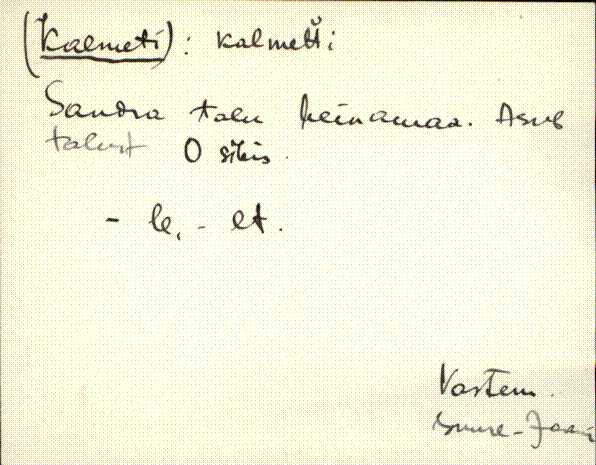 (Kalmeti): kalmetti
Sandra talu heinamaa. Asub
talust O sihis.
- le, - et.
Vastem.
Suure-Jaani